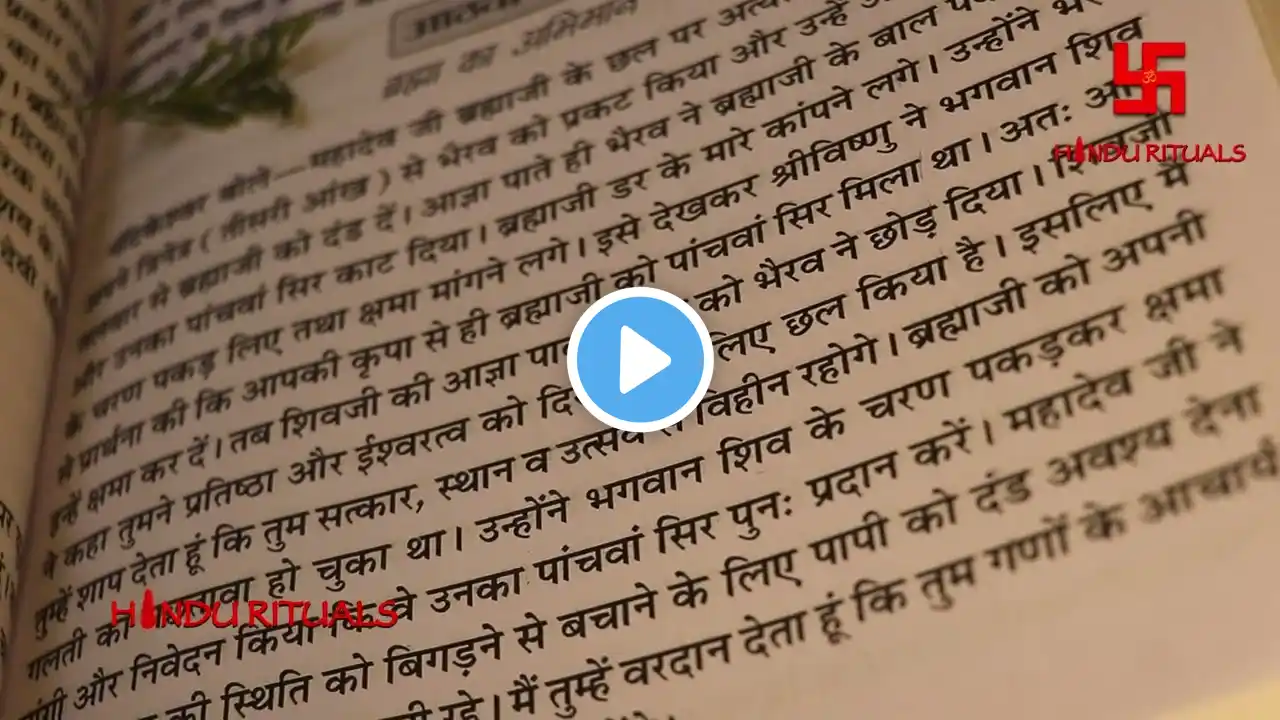 ब्रह्मा का अभिमान
बोले—महादेव जी ब्रह्माजी के छल पर
अपने त्रिनेत्र (तीसरी आंख) से भैरव को प्रकट किया और उन्हें
तलवार से ब्रह्माजी को दंड दें। आज्ञा पाते ही भैरव ने ब्रह्माजी के बाल
और उनका पांचवां सिर काट दिया। ब्रह्माजी डर के मारे कांपने लगे। उन्होंने
के चरण पकड़ लिए तथा क्षमा मांगने लगे। इसे देखकर श्रीविष्णु ने भगवान शिव
से प्रार्थना की कि आपकी कृपा से ही ब्रह्माजी को पांचवां सिर मिला था। अतः
इन्हें क्षमा कर दें। तब शिवजी की आज्ञा को भैरव ने छोड़ दिया। शिवजी
ने कहा तुमने प्रतिष्ठा और ईश्वरत्व को लिए छल किया है। इसलिए मैं
तुम्हें शाप देता हूं कि तुम सत्कार, स्थान व उत्सव विहीन रहोगे। ब्रह्माजी को अपनी
गलती का हो चुका था। उन्होंने भगवान शिव के चरण पकड़कर क्षमा
मांगी और निवेदन किया कि वे उनका पांचवां सिर पुनः प्रदान करें। महादेव जी ने
की स्थिति को बिगड़ने से बचाने के लिए पापी को दंड अवश्य देना
रहे। मैं तुम्हें वरदान देता हूं कि तुम गणों के आचार्य
HINDU RITUALS
HINDU RITUALS